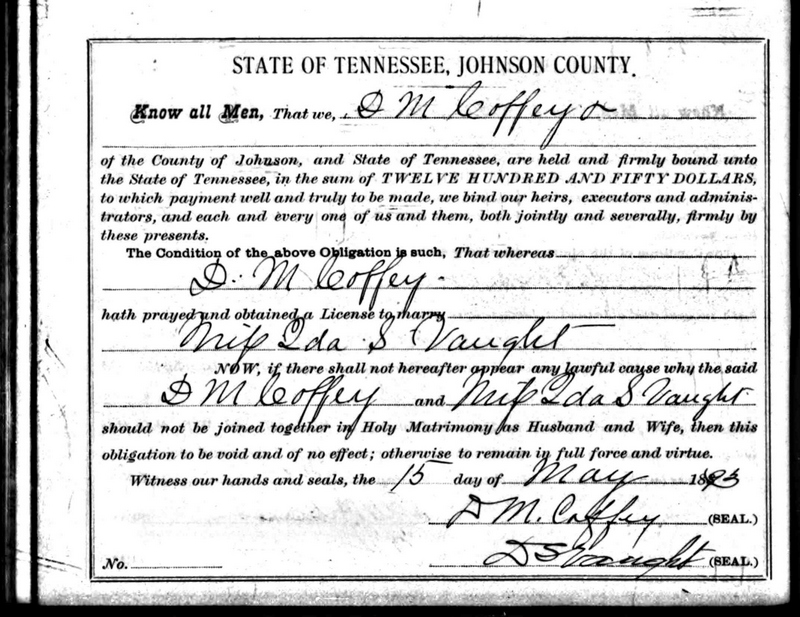 STATE OF TENNESSEE, JOHNSON COUNTY.
Know all Men, That we, D M Coffey &
of the County of Johnson, and State of Tennessee, are held and firmly bound unto
the State of Tennessee, in the sum of TWELVE HUNDRED AND FIFTY DOLLARS,
to which payment well and truly to be made, we bind our heirs, executors and adminis-
trators, and each and every one of us and them, both jointly and severally, firmly by
these presents.
The Condition of the above Obligation is such, That whereas
D. M Coffey.
hath prayed and obtained a License to marry
Miss Ida S Vaught
NOW, if there shall not hereafter appear any lawful cause why the said
D M Coffey and Miss Ida S Vaught
should not be joined together in Holy Matrimony as Husband and Wife, then this
obligation to be void and of no effect; otherwise to remain in full force and virtue.
Witness our hands and seals, the 15 day of May 1893
D M. Coffey (SEAL.)
D S Vaught (SEAL.)
No.